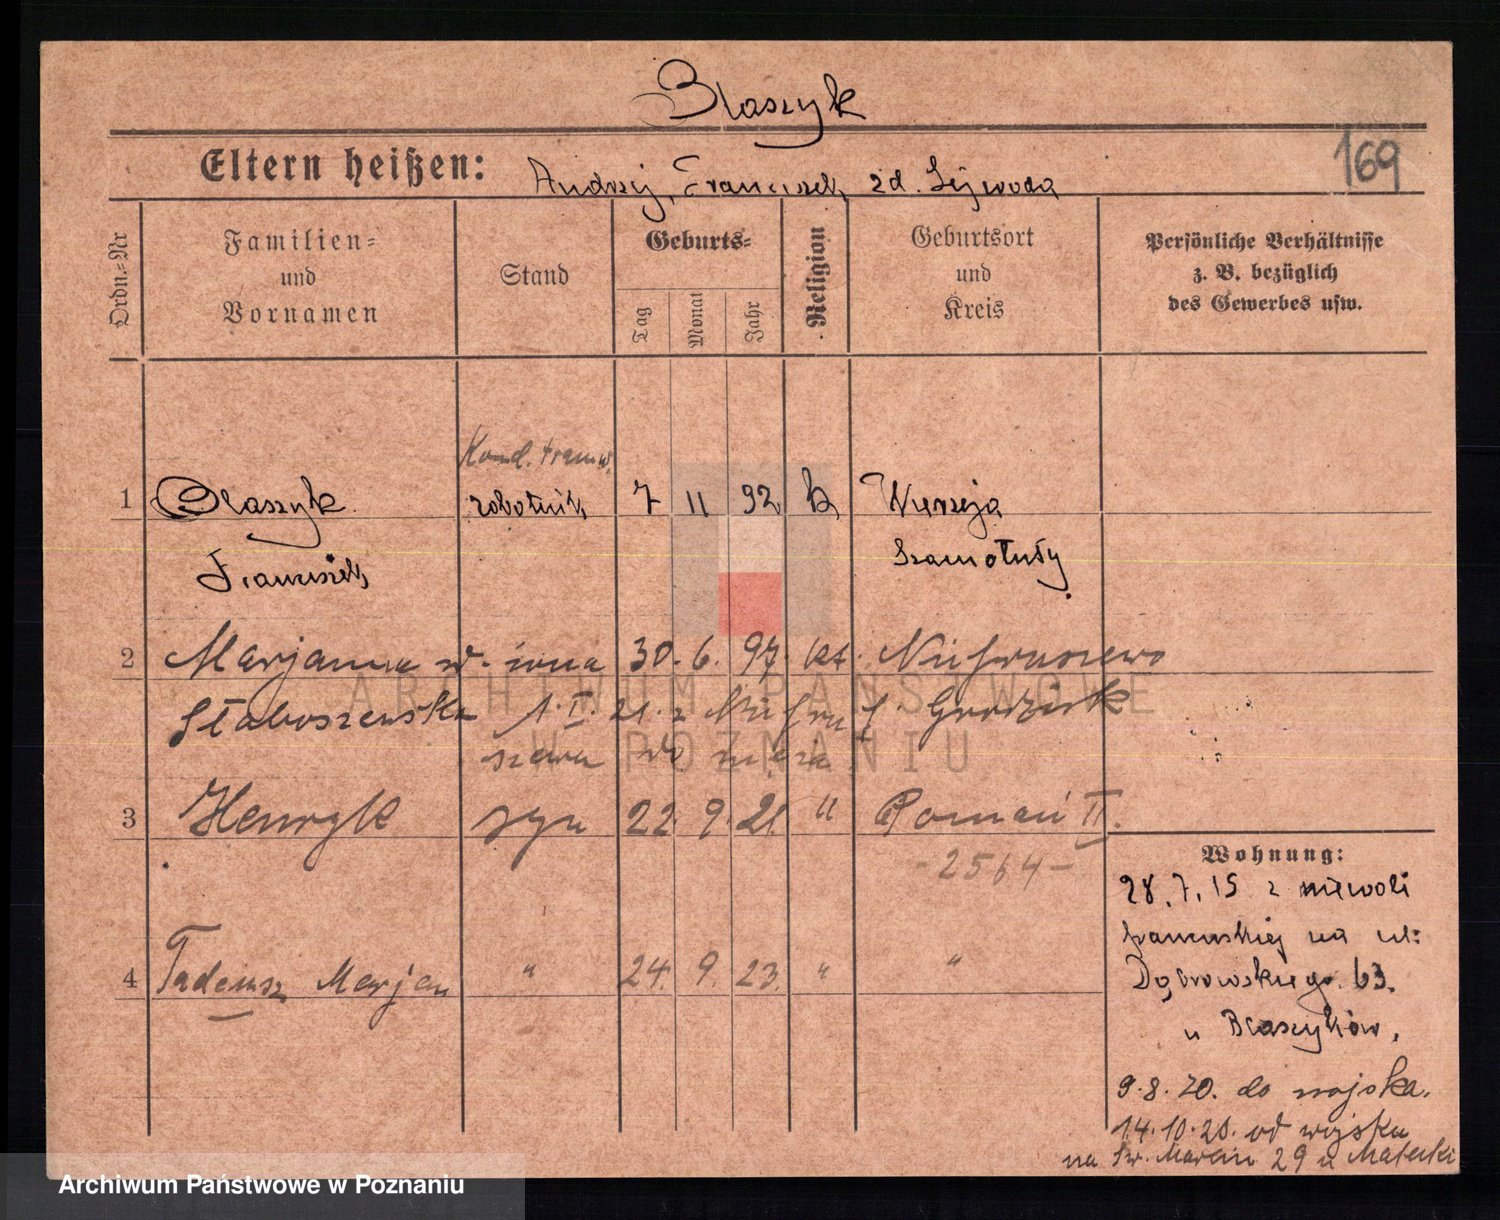 Blaszyk
Eltern heißen: Andrzej, Franciszek zd. Sejwoda
169
Ordn.=Nr
Familien=
und
Vornamen
Stand
Geburts=
Tag
Monat
Jahr
Religion
Geburtsort
und
Kreis
Persönliche Verhältnisse
z. B. bezüglich
des Gewerbes usw.
Kond. tramw.
1 Blaszyk robotnik 7 11 92 k Wierzeja
Franciszek Szamotuły
2 Marjanna żona 30. 6. 97. kt.
Słaboszewska 1. II. 21. z Grodzisk
szewa do męża
3 Henryk syn 22 9. 21 " Poznań II.
- 2564 -
4 Tadeusz Marjan " 24. 9. 23. " "
Wohnung:
28. 7. 15 z niewoli
francuskiej na ul:
Dąbrowskiego 63.
u Blaszyków.
9.8.20. do wojska.
14.10.20. od wojska
na Św. Marcin 29 u
ARCHIWUM PAŃSTWOWE
W POZNANIU
Archiwum Państwowe w Poznaniu